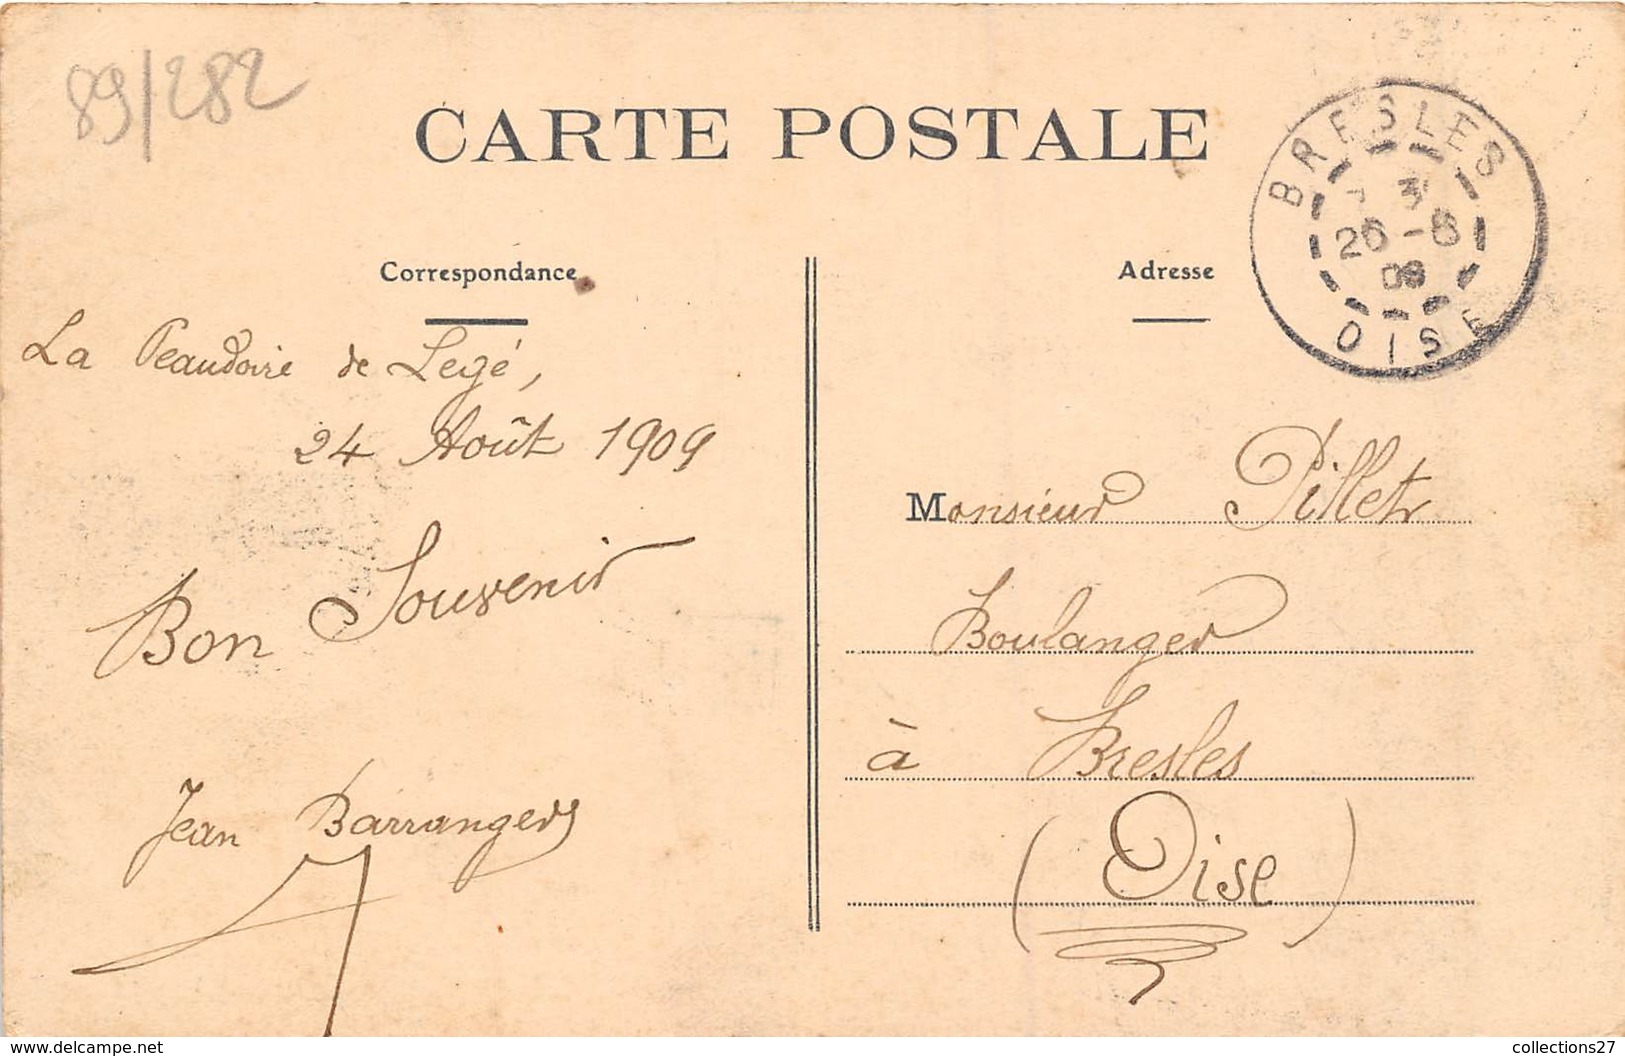 89/282
CARTE POSTALE
BRESLES
26 - 8
09
OISE
Correspondance
Adresse
La Peaudoire de Legé,
24 Août 1909
Bon Souvenir
Jean Barranger
Monsieur Pillet
Boulanger
à Bresles
(Oise)
https://www.delcampe.net
collections27